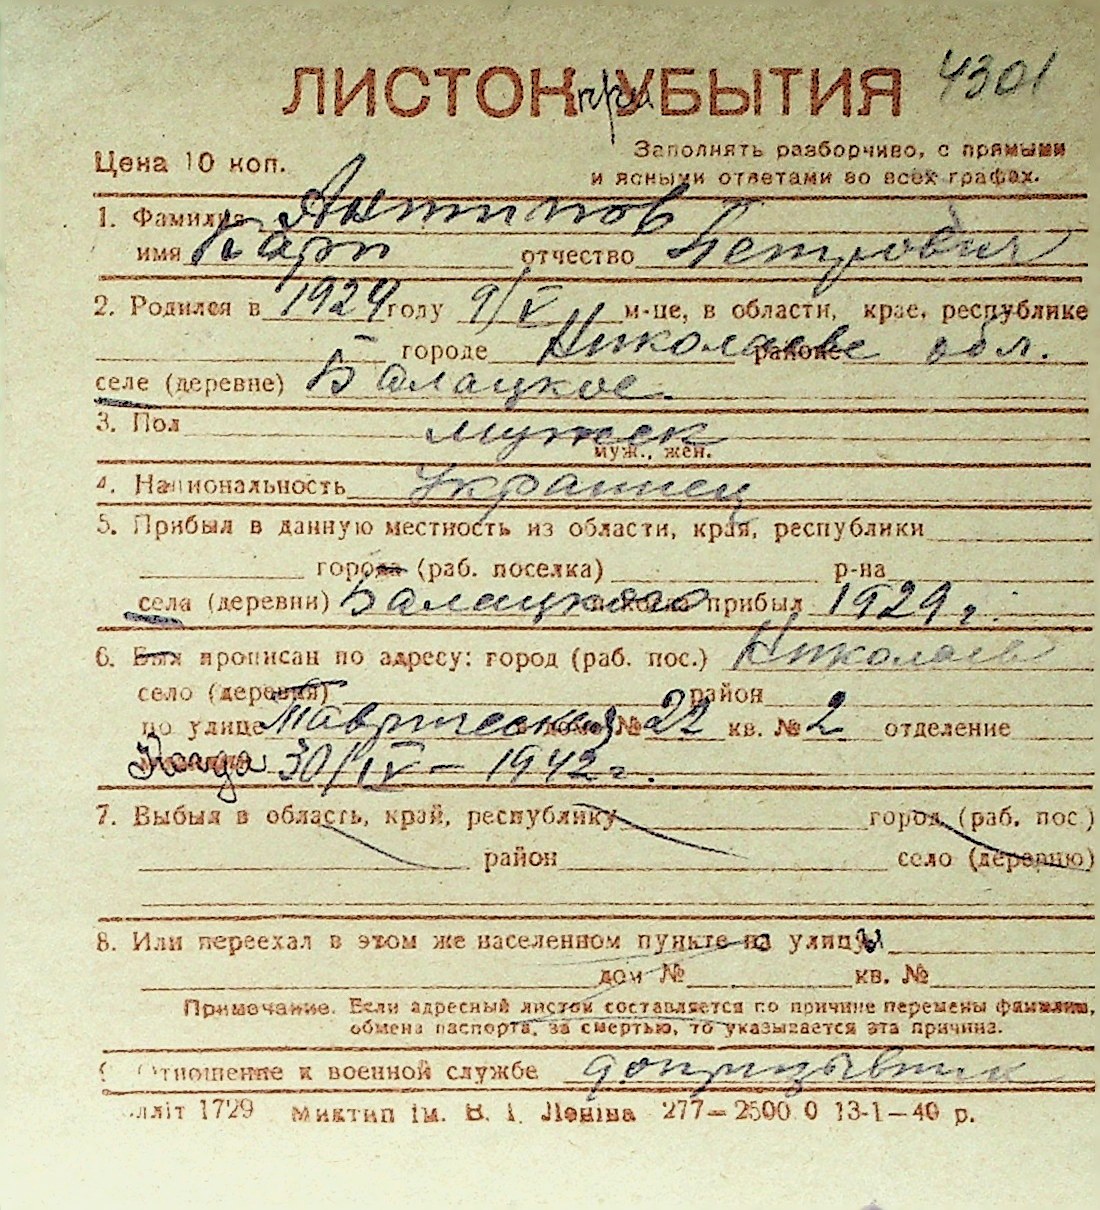 ЛИСТОК при УБЫТИЯ 4301
Цена 10 коп.
Заполнять разборчиво, с прямыми
и ясными ответами во всех графах.
1. Фамилия Антипов
имя Карп отчество Петрович
2. Родился в 1924 году 9/V м-це, в области, крае, республике
городе Николаеве районе обл.
селе (деревне) Балацкое.
3. Пол мужск
муж., жен.
4. Национальность Украинец
5. Прибыл в данную местность из области, края, республики
города (раб. поселка) р-на
села (деревни) Балацкого прибыл 1929 г.
6. Был прописан по адресу: город (раб. пос.) Николаев
село (деревня) район
по улице Таврическая дом № 22 кв. № 2 отделение
Когда 30/IV – 1942 г.
7. Выбыл в область, край, республику город (раб. пос.)
район село (деревню)
8. Или переехал в этом же населенном пункте на улицу
дом № кв. №
Примечание. Если адресный листок составляется по причине перемены фамилии,
обмена паспорта, за смертью, то указывается эта причина.
9. Отношение к военной службе допризывник
1729 Миктип ім. В. І. Леніна 277—2500.0 13-1—40 р.